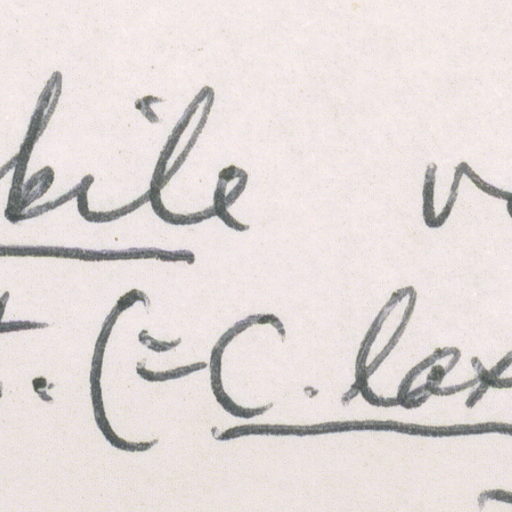 bile v
t. (= C. lax